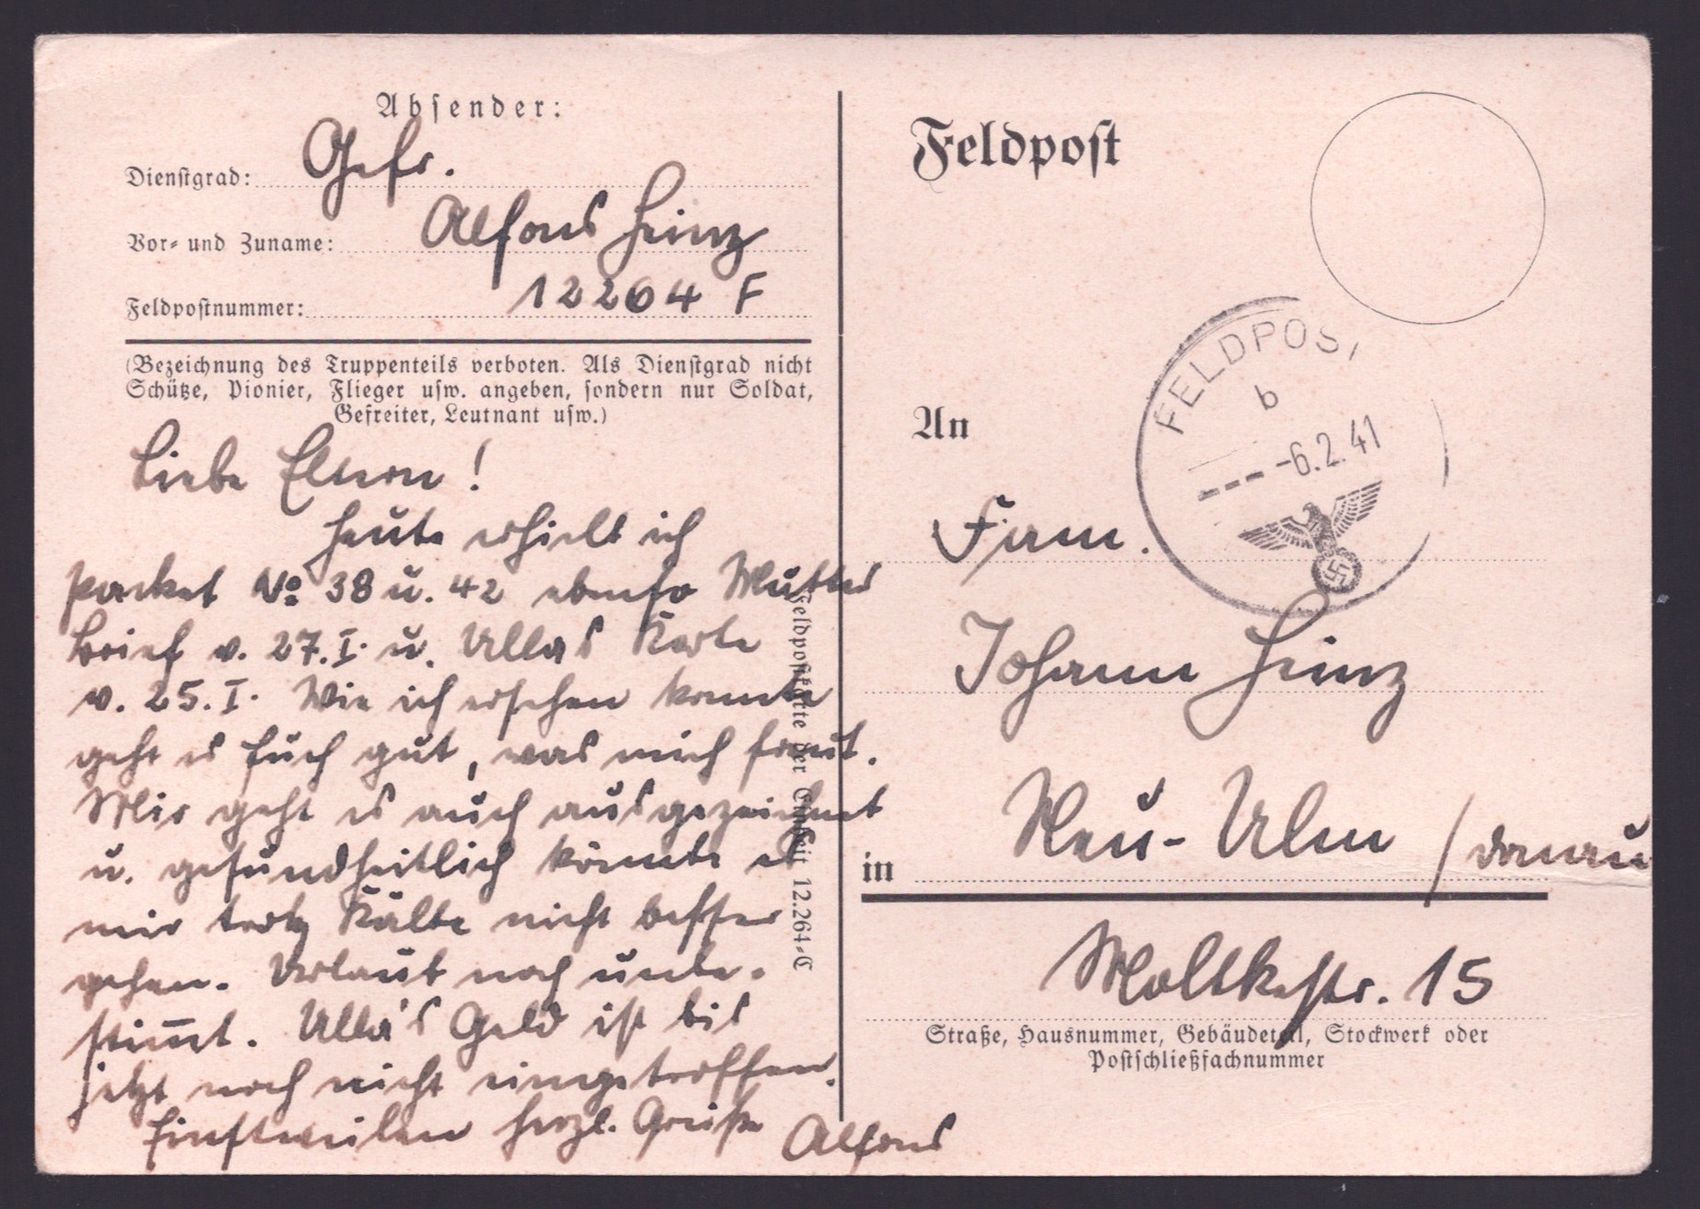 Absender:
Dienstgrad: Gefr.
Vor- und Zuname: Alfons Heinz
Feldpostnummer: 12264 F
(Bezeichnung des Truppenteils verboten. Als Dienstgrad nicht
Schütze, Pionier, Flieger usw. angeben, sondern nur Soldat,
Gefreiter, Leutnant usw.)
Liebe Eltern!
Heute erhielt ich
Packet No 38 u. 42 ebenso Mutters
Brief v. 27.I. u. Ulla's Karte
v. 25.I. Wie ich ersehen konnte
geht es Euch gut, was mich freut.
Mir geht es auch ausgezeichnet
u. gesundheitlich könnte es
mir trotz Kälte nicht besser
gehen. Urlaub noch unbe-
stimmt. Ulla's Geld ist bis
jetzt noch nicht eingetroffen.
Einstweilen herzl. Grüße Alfons
Feldpostkarte der Einheit 12.264-C
Feldpost
FELDPOST
b
---6.2.41
An
Fam.
Johann Heinz
in Neu-Ulm / Donau
Moltkestr. 15
Straße, Hausnummer, Gebäudeteil, Stockwerk oder
Postschließfachnummer